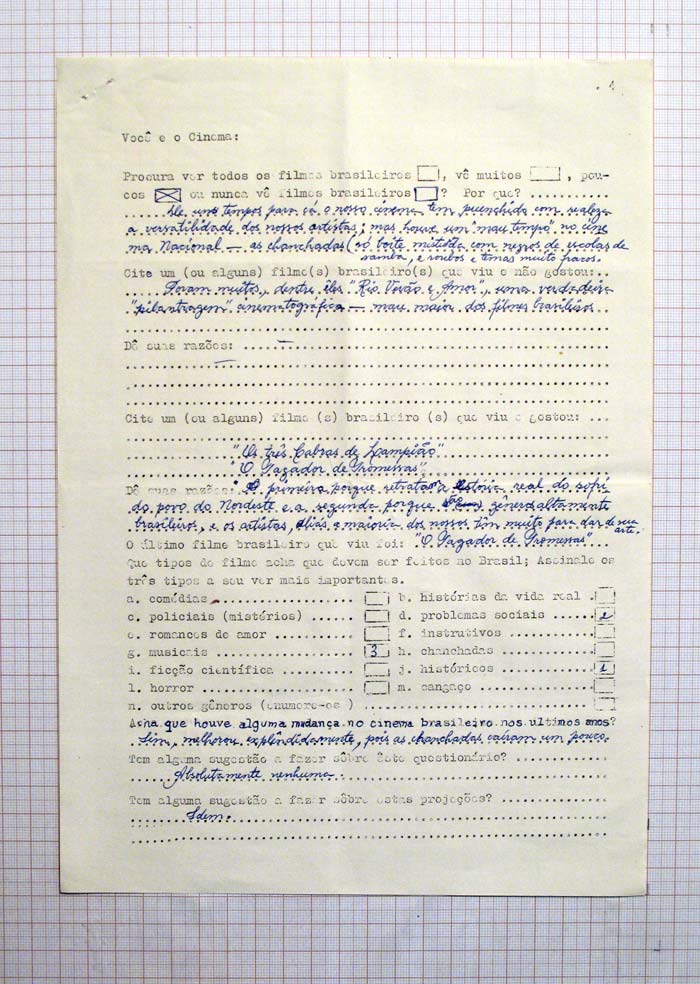 4
Você e o Cinema:
Procura ver todos os filmes brasileiros , vê muitos , pou-
cos ou nunca vê filmes brasileiros ? Por que? ..........
De uns tempos para cá o nosso cinema tem preenchido com realeza
a versatilidade dos nossos artistas; mas houve um "mau tempo" no cine
ma Nacional — as chanchadas (só boite misturada com negros de escolas de
samba, e roubos e temas muito fracos.
Cite um (ou alguns) filme(s) brasileiro(s) que viu e não gostou:..
Foram muitos, dentre êles "Rio Verão e Amor", uma verdadeira
"pilantragem" cinematográfica — mau maior dos filmes brasileiros
Dê suas razões: —
Cite um (ou alguns) filme (s) brasileiro (s) que viu e gostou: ...
"Os três Cabras de Lampião"
"O Pagador de Promessas"
Dê suas razões: O primeiro porque retrata a estória real do sofri
do povo do Nordeste e a segunda porque gênero altamente
brasileiros, e os artistas, aliás a maioria dos nossos têm muito para dar de sua
arte.
O último filme brasileiro que viu foi: "O Pagador de Promessas"
Que tipos de filme acha que devem ser feitos no Brasil; Assinale os
três tipos a seu ver mais importantes.
a. comédias ................ b. histórias da vida real .
c. policiais (mistérios) ...... d. problemas sociais ......
e. romances de amor ........... f. instrutivos ............
g. musicais ................... 3 h. chanchadas .............
i. ficção científica .......... j. históricos ............. 1
l. horror ..................... m. cangaço ................
n. outros gêneros (enumere-os ) ..........................
Acha que houve alguma mudança no cinema brasileiro nos ultimos anos?
Sim, melhorou explêndidamente, pois as chanchadas caíram um pouco.
Tem alguma sugestão a fazer sôbre êste questionário? ............
Absolutamente nenhuma.
Tem alguma sugestão a fazer sôbre estas projeções? ..............
Idem.